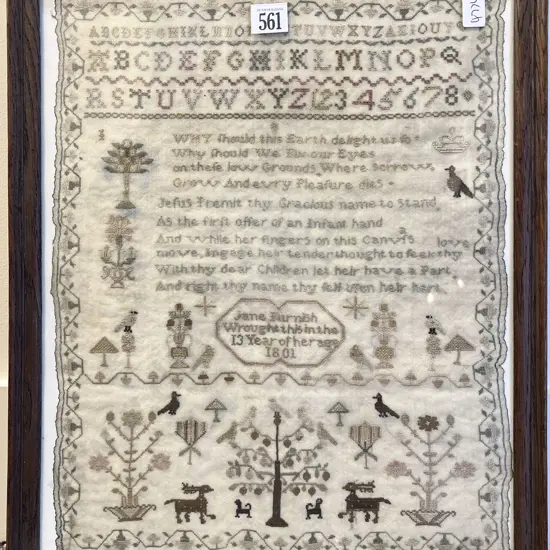 561
ABCDEFGHIKLMNOP
TUVWXYZAEIOUY
ABCDEFGHIKLMNOPQ
RSTUVWXYZ12345678
WHY should this Earth delight us so
Why should We Fix our Eyes
on these low Grounds Where Sorrows
Grow And every Pleasure dies
Jesus Permit thy Gracious name to Stand
As the first offer of an Infant hand
And while her fingers on this Canvas
move, Engage heir tender thought to seek thy love
With thy dear Children let heir have a Part
And right thy name thy self upon heir hart
Jane Furnish
Wrought this in the
13 Year of her age
1801